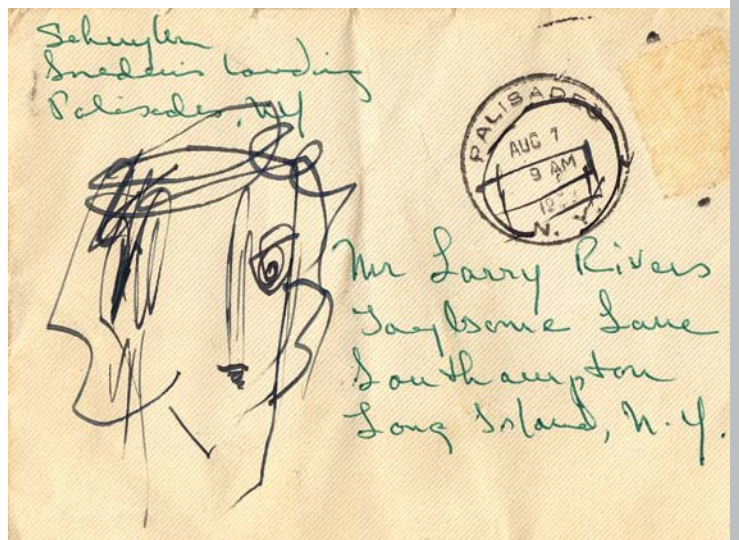 Schuyler
Snedens Landing
Palisades, NY
PALISADES
AUG 7
9 AM
N. Y.
Mr Larry Rivers
Lane
Southampton
Long Island, N. Y.